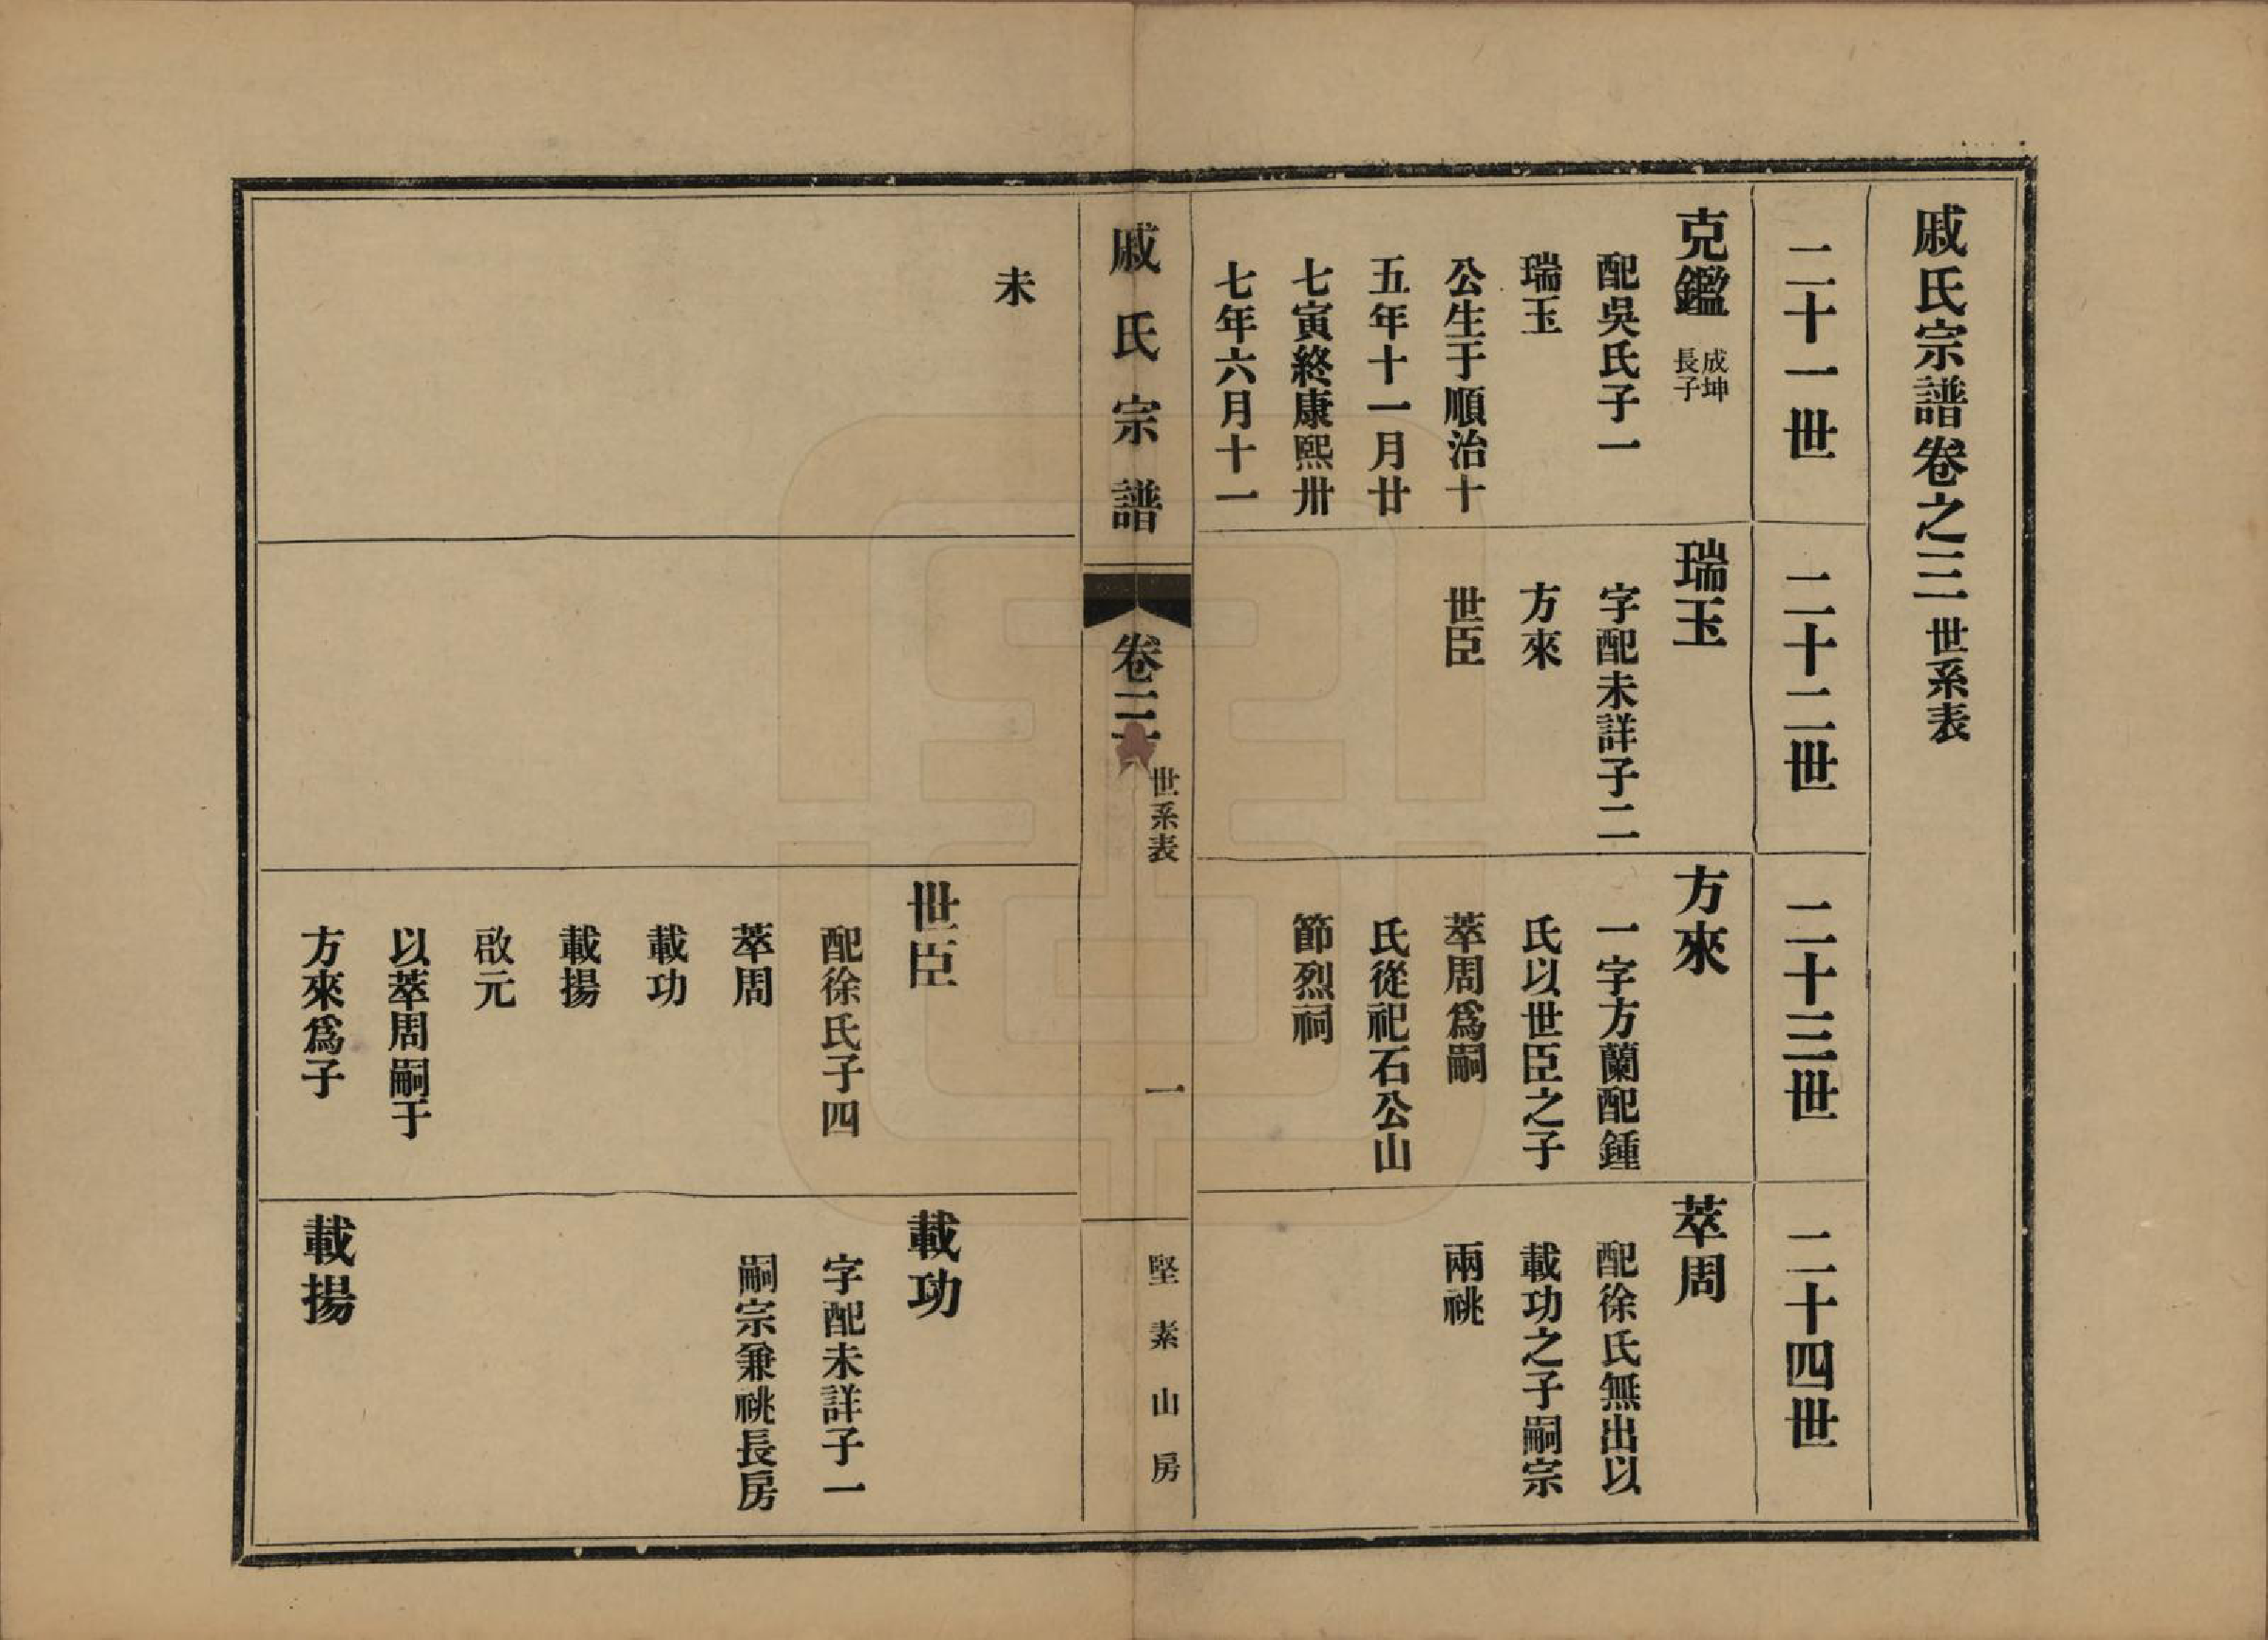 戚氏宗譜卷之三世系表
二十一世
二十二世
二十三世
二十四世
克鑑
成坤
長子
配吳氏子一
瑞玉
公生于順治十
五年十一月廿
七寅終康熙卅
七年六月十一
瑞玉
字配未詳子二
方來
世臣
方來
一字方蘭配鍾
氏以世臣之子
萃周爲嗣
氏從祀石公山
節烈祠
萃周
配徐氏無出以
載功之子嗣宗
兩祧
戚氏宗譜
卷三
世系表
一
堅素山房
未
世臣
配徐氏子四
萃周
載功
載揚
啟元
以萃周嗣于
方來爲子
載功
字配未詳子一
嗣宗兼祧長房
載揚